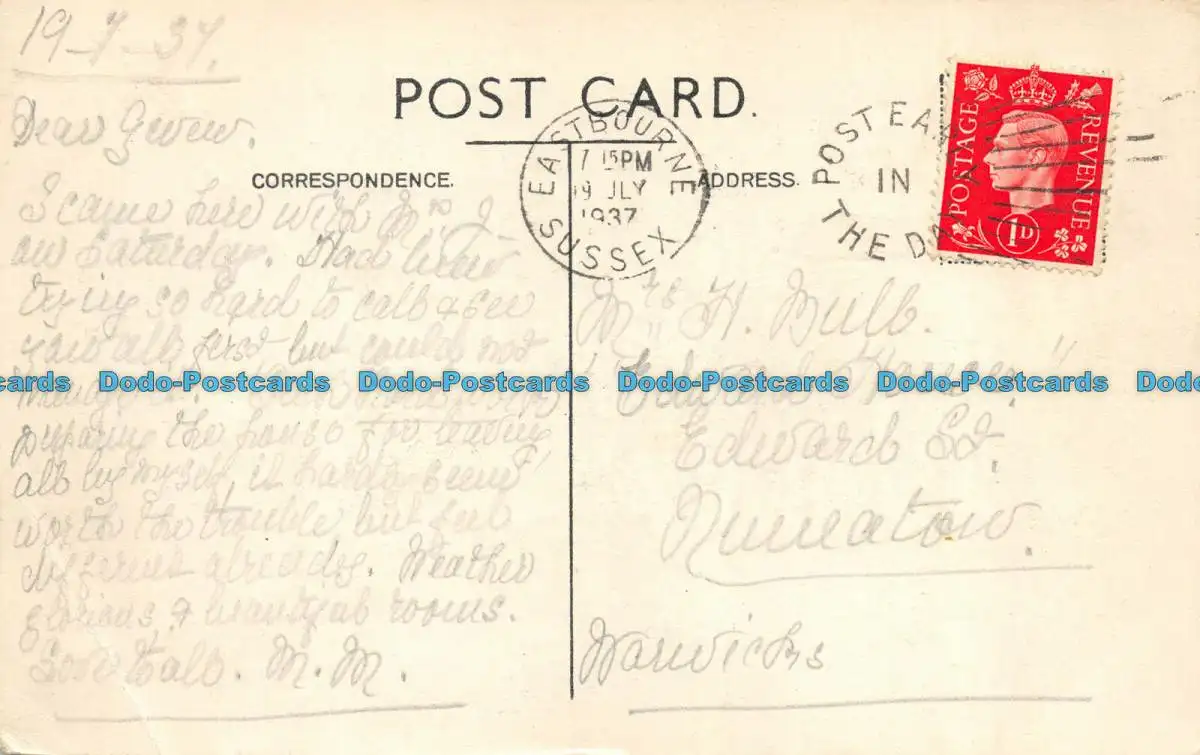 19-7-37.
POST CARD.
CORRESPONDENCE.
ADDRESS.
EASTBOURNE
7 15PM
19 JLY
1937
SUSSEX
POST EA
IN
THE DA
POSTAGE
REVENUE
1D
Dear Gwen.
I came here with Mrs J
on Saturday. Have been
trying so hard to call & see
you all first but could not
preparing the house for leaving
all by myself, it hardly seems
worth the trouble, but feel
different already. Weather
glorious, & beautiful rooms.
Love to all. M. M.
Mrs H. Bull.
Edward St.
Nuneaton.
Warwicks
Dodo-Postcards Dodo-Postcards Dodo-Postcards Dodo-Postcards